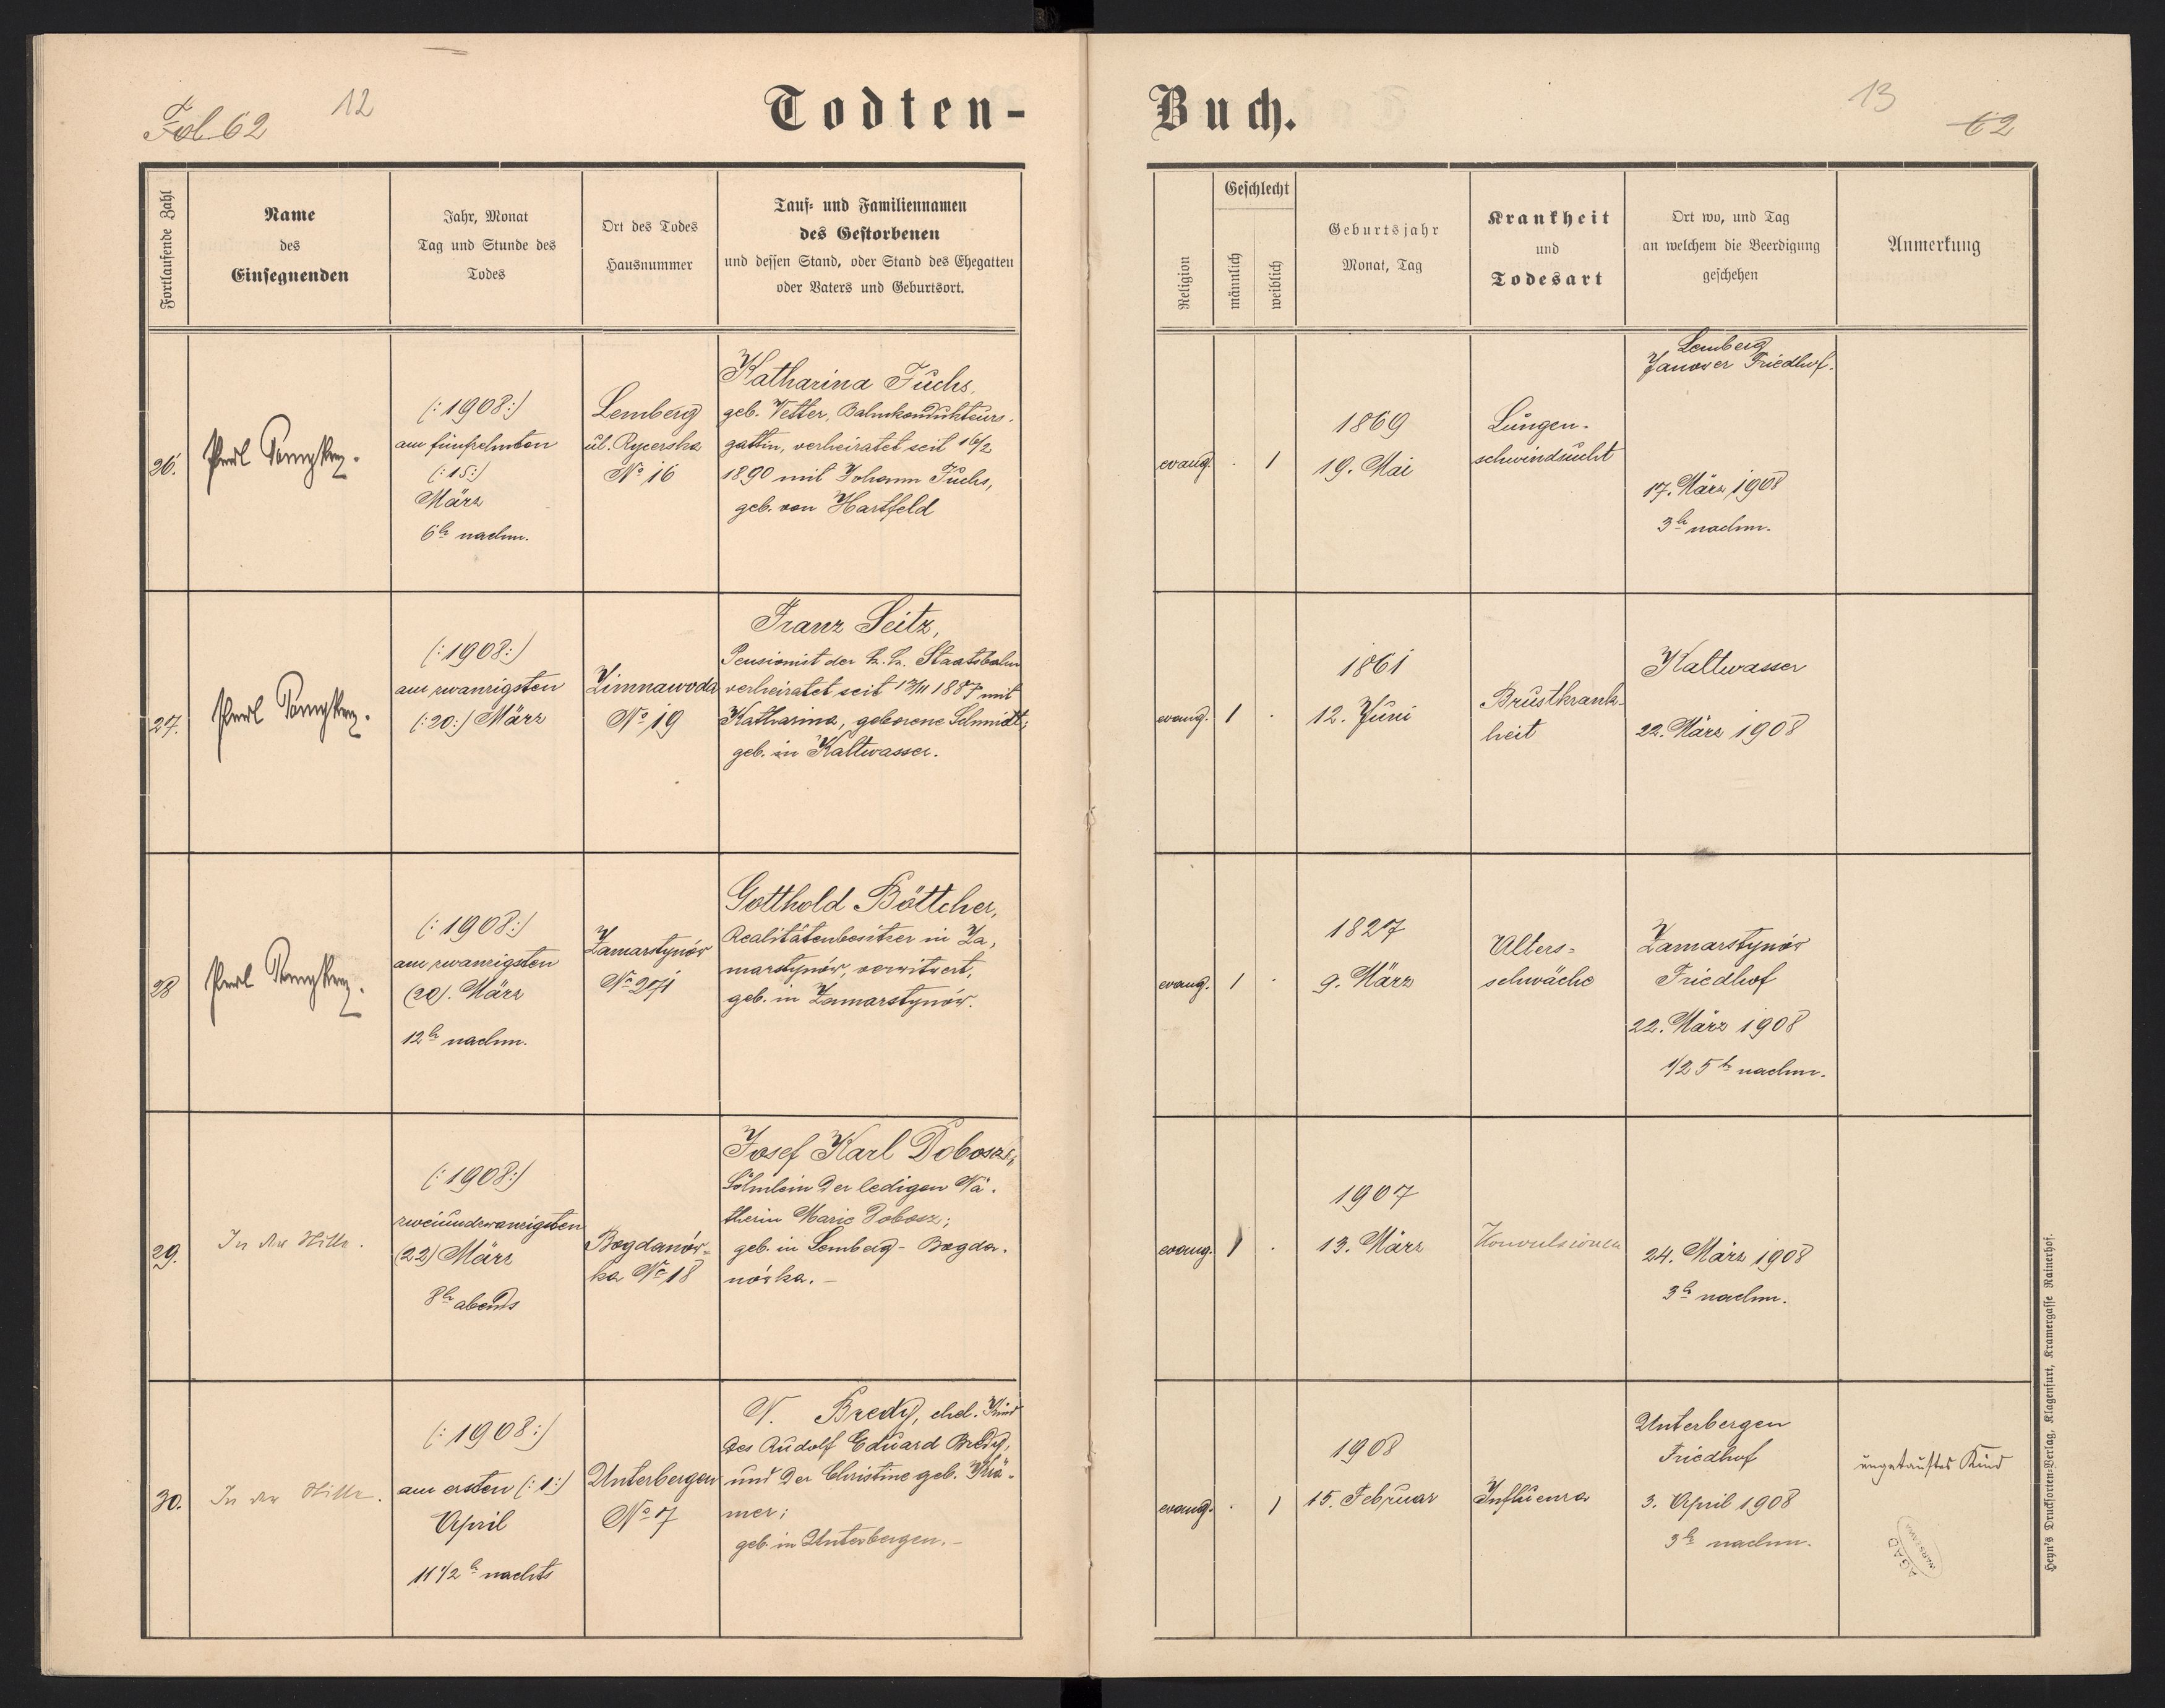 Fol 62
12
Todten-
Buch.
13
62
Fortlaufende Zahl
Name
des
Einsegnenden
Jahr, Monat
Tag und Stunde des
Todes
Ort des Todes
Hausnummer
Tauf- und Familiennamen
des Gestorbenen
und dessen Stand, oder Stand des Ehegatten
oder Vaters und Geburtsort.
Religion
Geschlecht
männlich
weiblich
Geburtsjahr
Monat, Tag
Krankheit
und
Todesart
Ort wo, und Tag
an welchem die Beerdigung
geschehen
Anmerkung
26.
(: 1908 :)
am fünfzehnten
(: 15 :)
März
6h nachm.
Lemberg
ul. Rycerska
No 16
Katharina Fuchs,
geb. Vetter, Bahnkondukteurs-
gattin, verheiratet seit 16/2
1890 mit Johann Fuchs,
geb. von Hartfeld
evang.
. 1
1869
19. Mai
Lungen-
schwindsucht
Lemberg
Janower Friedhof.
17. März 1908
3h nachm.
27.
(: 1908 :)
am zwanzigsten
(: 20 :) März
Zimnawoda
No 19
Franz Seitz,
Pensionist der k. k. Staatsbahn
verheiratet seit 1887 mit
Katharina, geborene Schmidt;
geb. in Kaltwasser.
evang.
1 .
1861
12. Juni
Brustkrank-
heit
Kaltwasser
22. März 1908
28
(: 1908 :)
am zwanzigsten
(20). März
12h nachm.
Zamarstynów
No 271
Gotthold Böttcher,
Realitätenbesitzer in Za,
marstynów, verwitwet,
geb. in Zamarstynów.
evang.
1 .
1827
9. März
Alters-
schwäche
Zamarstynów
Friedhof
22. März 1908
1/2 5h nachm.
29.
In der Stille.
(: 1908 :)
zweiundzwanzigsten
(22) März
8h abends
Bogdanów-
ka No 18
Josef Karl Dobosz,
Söhnlein der ledigen Nä-
therin Marie Dobosz;
geb. in Lemberg - Bogda-
nówka. -
evang.
1 .
1907
13. März
Konvulsionen
24. März 1908
3h nachm.
30.
In der Stille.
(: 1908 :)
am ersten (: 1 :)
April
11 1/2 h nachts
Unterbergen
No 7
N. Bredy, ehel. Kind
des Rudolf Eduard Bredy,
und der Christine geb. Krä-
mer;
geb. in Unterbergen. -
evang.
. 1
1908
15. Februar
Influenza
Unterbergen
Friedhof
3. April 1908
3h nachm.
ungetauftes Kind
AGAD
WARSZAWA
Heyn's Druckforten-Verlag, Klagenfurt, Kramergasse Rainerhof.